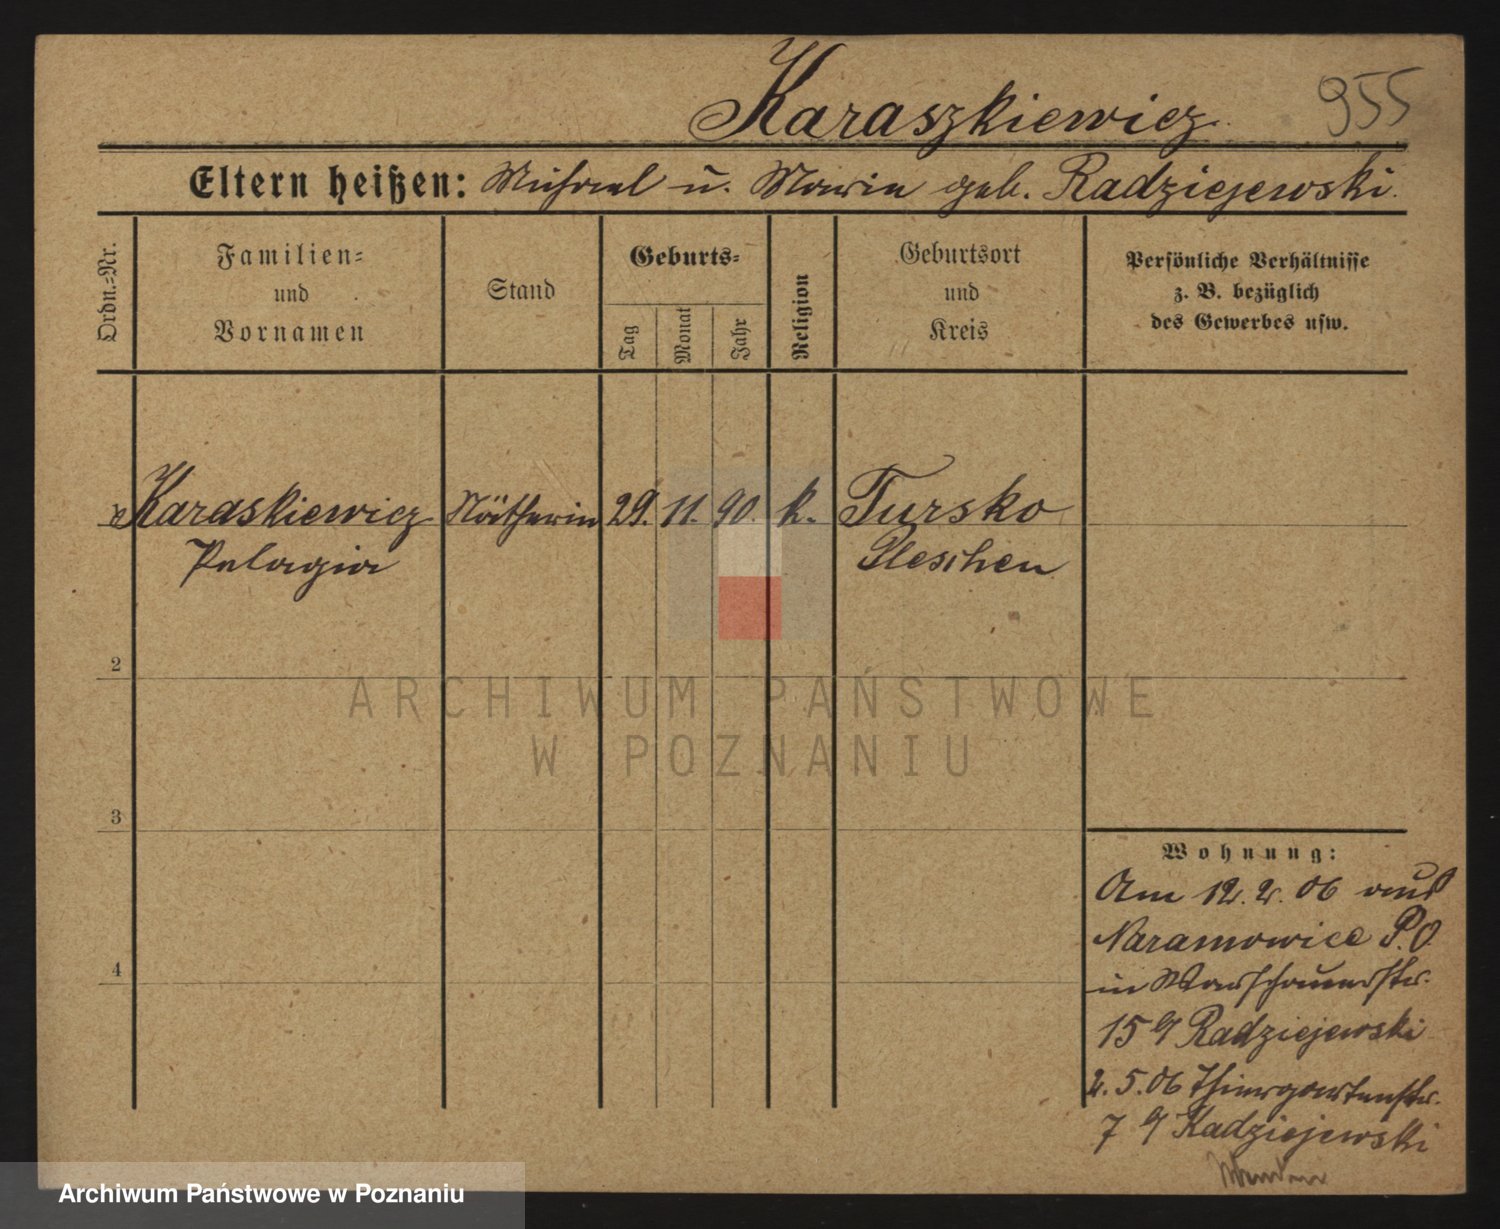 Karaszkiewicz
955
Eltern heißen: Michael u. Maria geb. Radziejewski.
Ordn.-Nr.
Familien-
und
Vornamen
Stand
Geburts-
Tag
Monat
Jahr
Religion
Geburtsort
und
Kreis
Persönliche Verhältnisse
z. B. bezüglich
des Gewerbes usw.
Karaskiewicz Nätherin 29. 11. 90. k. Tursko
Pelagia Pleschen
2
ARCHIWUM PAŃSTWOWE
W POZNANIU
3
Wohnung:
Am 12. 2. 06 aus
Naramowice P.O
4
in Warschauerstr.
15 b/ Radziejewski
2. 5. 06 Thiergartenstr.
7 b/ Radziejewski
Archiwum Państwowe w Poznaniu